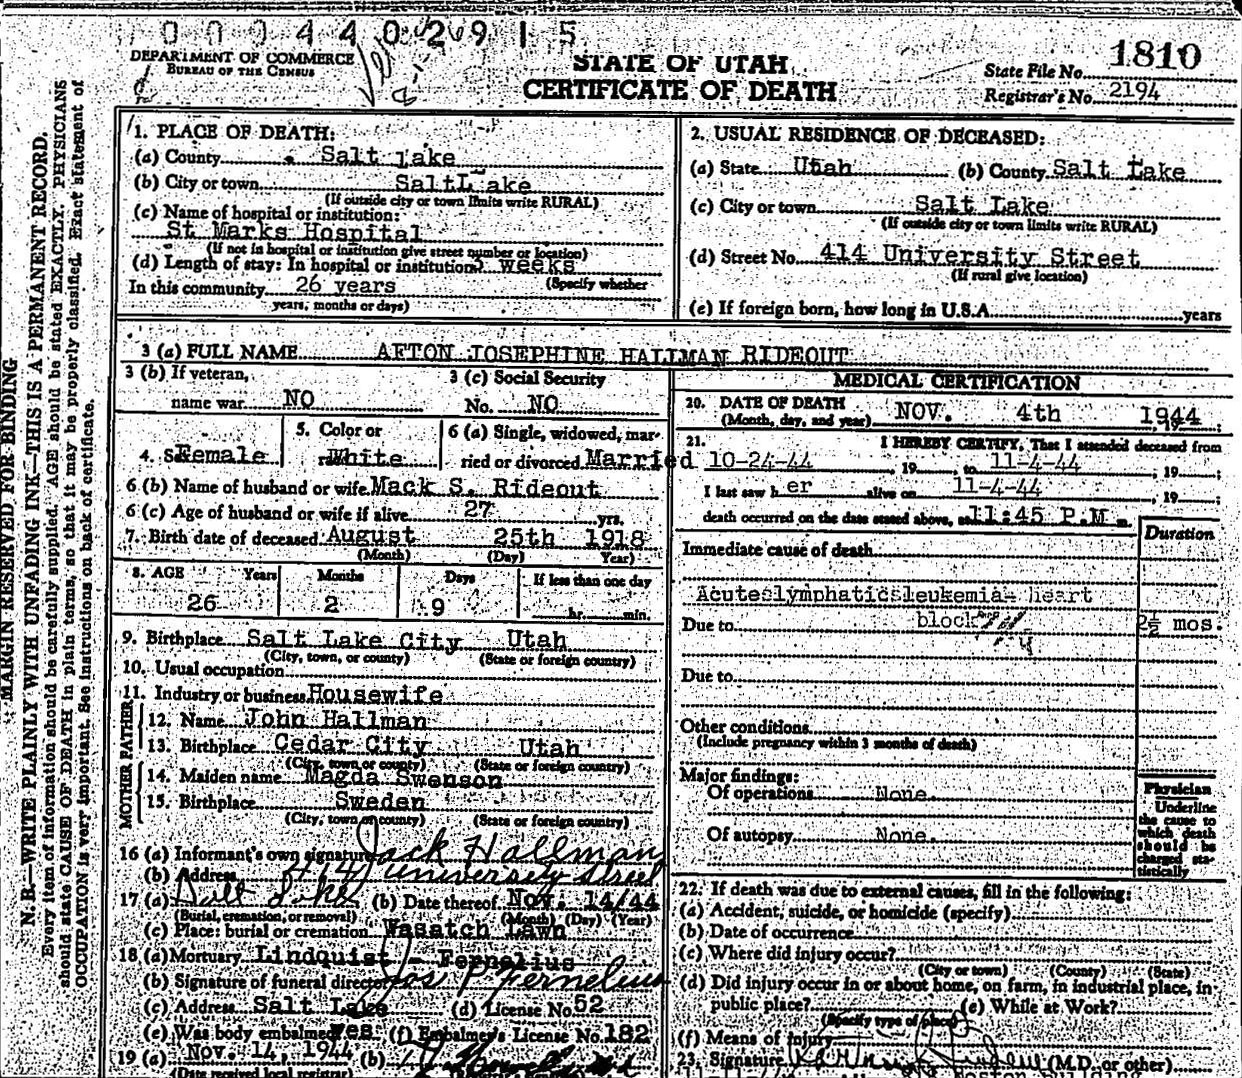 000440 2915
DEPARTMENT OF COMMERCE
BUREAU OF THE CENSUS
STATE OF UTAH
CERTIFICATE OF DEATH
State File No. 1810
Registrar's No. 2194
MARGIN RESERVED FOR BINDING
N. B.—WRITE PLAINLY WITH UNFADING INK—THIS IS A PERMANENT RECORD.
Every item of information should be carefully supplied. AGE should be stated EXACTLY. PHYSICIANS
should state CAUSE OF DEATH in plain terms, so that it may be properly classified. Exact statement of
OCCUPATION is very important. See instructions on back of certificate.
1. PLACE OF DEATH:
(a) County Salt Lake
(b) City or town SaltLake
(If outside city or town limits write RURAL)
(c) Name of hospital or institution:
St Marks Hospital
(If not in hospital or institution give street number or location)
(d) Length of stay: In hospital or institution weeks
In this community 26 years (Specify whether
years, months or days)
2. USUAL RESIDENCE OF DECEASED:
(a) State Utah (b) County Salt Lake
(c) City or town Salt Lake
(If outside city or town limits write RURAL)
(d) Street No. 414 University Street
(If rural give location)
(e) If foreign born, how long in U.S.A. years
3 (a) FULL NAME AFTON JOSEPHINE HALLMAN RIDEOUT
3 (b) If veteran,
name war NO
3 (c) Social Security
No. NO
4. Sex Female
5. Color or
race White
6 (a) Single, widowed, mar-
ried or divorced Married
6 (b) Name of husband or wife Mack S. Rideout
6 (c) Age of husband or wife if alive 27 yrs.
7. Birth date of deceased August 25th 1918
(Month) (Day) Year)
8. AGE Years Months Days If less than one day
26 2 9 hr. min.
9. Birthplace Salt Lake City Utah
(City, town, or county) (State or foreign country)
10. Usual occupation
11. Industry or business Housewife
FATHER
12. Name John Hallman
13. Birthplace Cedar City Utah
(City, town or county) (State or foreign country)
MOTHER
14. Maiden name Magda Swenson
15. Birthplace Sweden
(City, town or county) (State or foreign country)
16 (a) Informant's own signature Jack Hallman
(b) Address 414 University Street
17 (a) Salt Lake (b) Date thereof Nov. 14/44
(Burial, cremation, or removal) (Month) (Day) (Year)
(c) Place: burial or cremation Wasatch Lawn
18 (a) Mortuary Lindquist - Fernelius
(b) Signature of funeral director Jos P Fernelius
(c) Address Salt Lake (d) License No. 52
(e) Was body embalmed yes (f) Embalmer's License No. 182
19 (a) Nov. 14, 1944 (b)
(Date received local registrar)
MEDICAL CERTIFICATION
20. DATE OF DEATH
(Month, day, and year) NOV. 4th 1944
21. I HEREBY CERTIFY, That I attended deceased from
10-24-44, 19 to 11-4-44, 19 ;
I last saw h er alive on 11-4-44, 19 ;
death occurred on the date stated above, at 11:45 P.M.
Duration
Immediate cause of death
Acuteslymphaticsleukemia- heart
Due to block 2½ mos.
Due to
Other conditions
(Include pregnancy within 3 months of death)
Major findings:
Of operations None.
Of autopsy None.
Physician
Underline
the cause to
which death
should be
charged sta-
tistically
22. If death was due to external causes, fill in the following:
(a) Accident, suicide, or homicide (specify)
(b) Date of occurrence
(c) Where did injury occur?
(City or town) (County) (State)
(d) Did injury occur in or about home, on farm, in industrial place, in
public place? (e) While at Work?
(Specify type of place)
(f) Means of injury
23. Signature (M.D. or other)